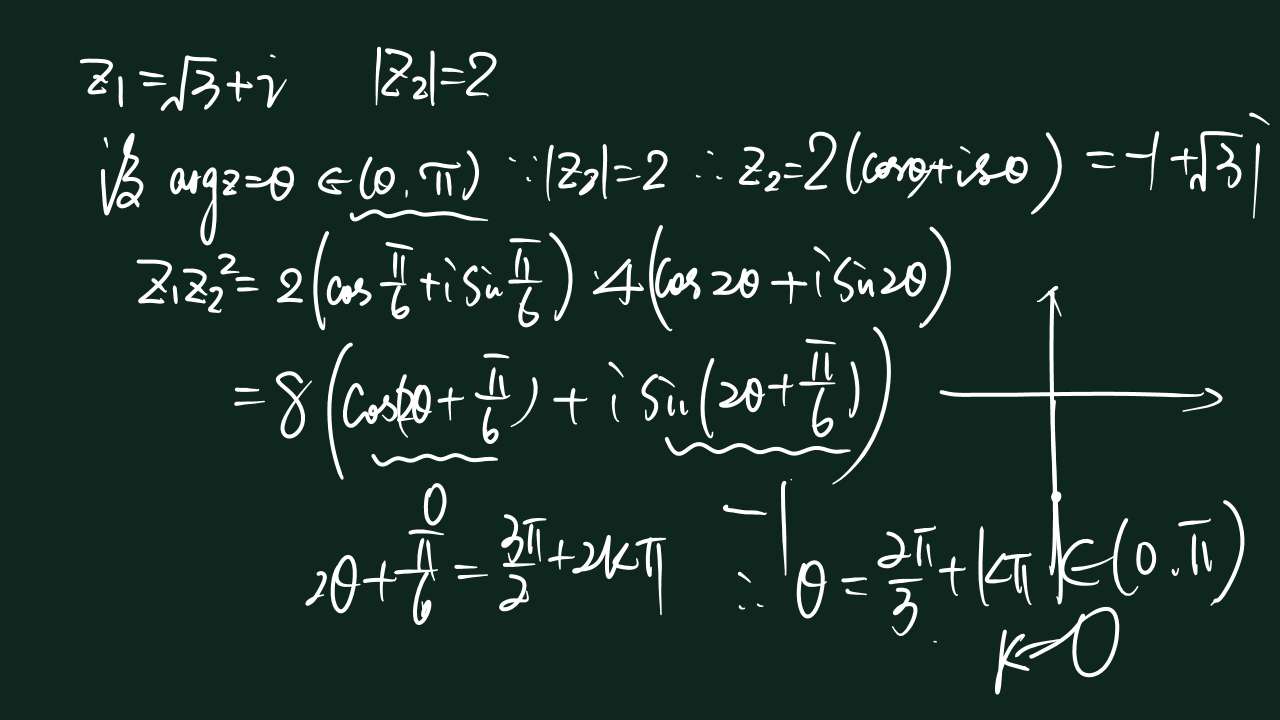 z₁=√3+i |Z₂|=2
设 argz=θ ∈(0,π) ∵|Z₂|=2 ∴ Z₂=2(cosθ+isθ) =-1+√3i
Z₁Z₂²= 2(cos π/6 + i sin π/6)·4(cos2θ+i sin2θ)
=8(cos(2θ+π/6)+i sin(2θ+π/6))
0 -1
2θ+π/6=3π/2+2kπ ∴ θ=2π/3+kπ∈(0,π)
k=0